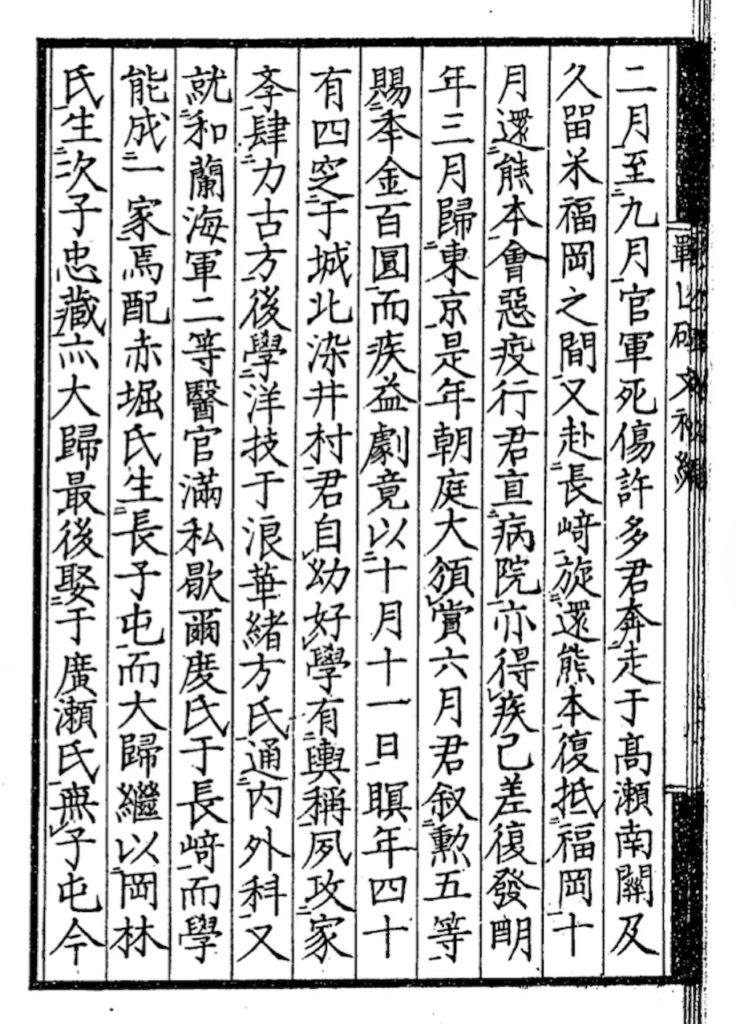 二月至九月官軍死傷許多君奔走于高瀨南關及
久留米福岡之間又赴長﨑旋還熊本復抵福岡十
月還熊本會惡疫行君直病院亦得疾已差復發明
年三月歸東京是年朝庭大頒賞六月君叙勲五等
賜夲金百圓而疾益劇竟以十月十一日瞑年四十
有四窆于城北染井村君自幼好學有輿稱夙攻家
李肆力古方後學洋技于浪華緒方氏通内外科又
就和蘭海軍二等醫官滿私歇爾度氏于長﨑而學
能成一家焉配赤堀氏生長子屯而大歸繼以岡林
氏生次子忠藏亦大歸最後娶于廣瀨氏無子屯今